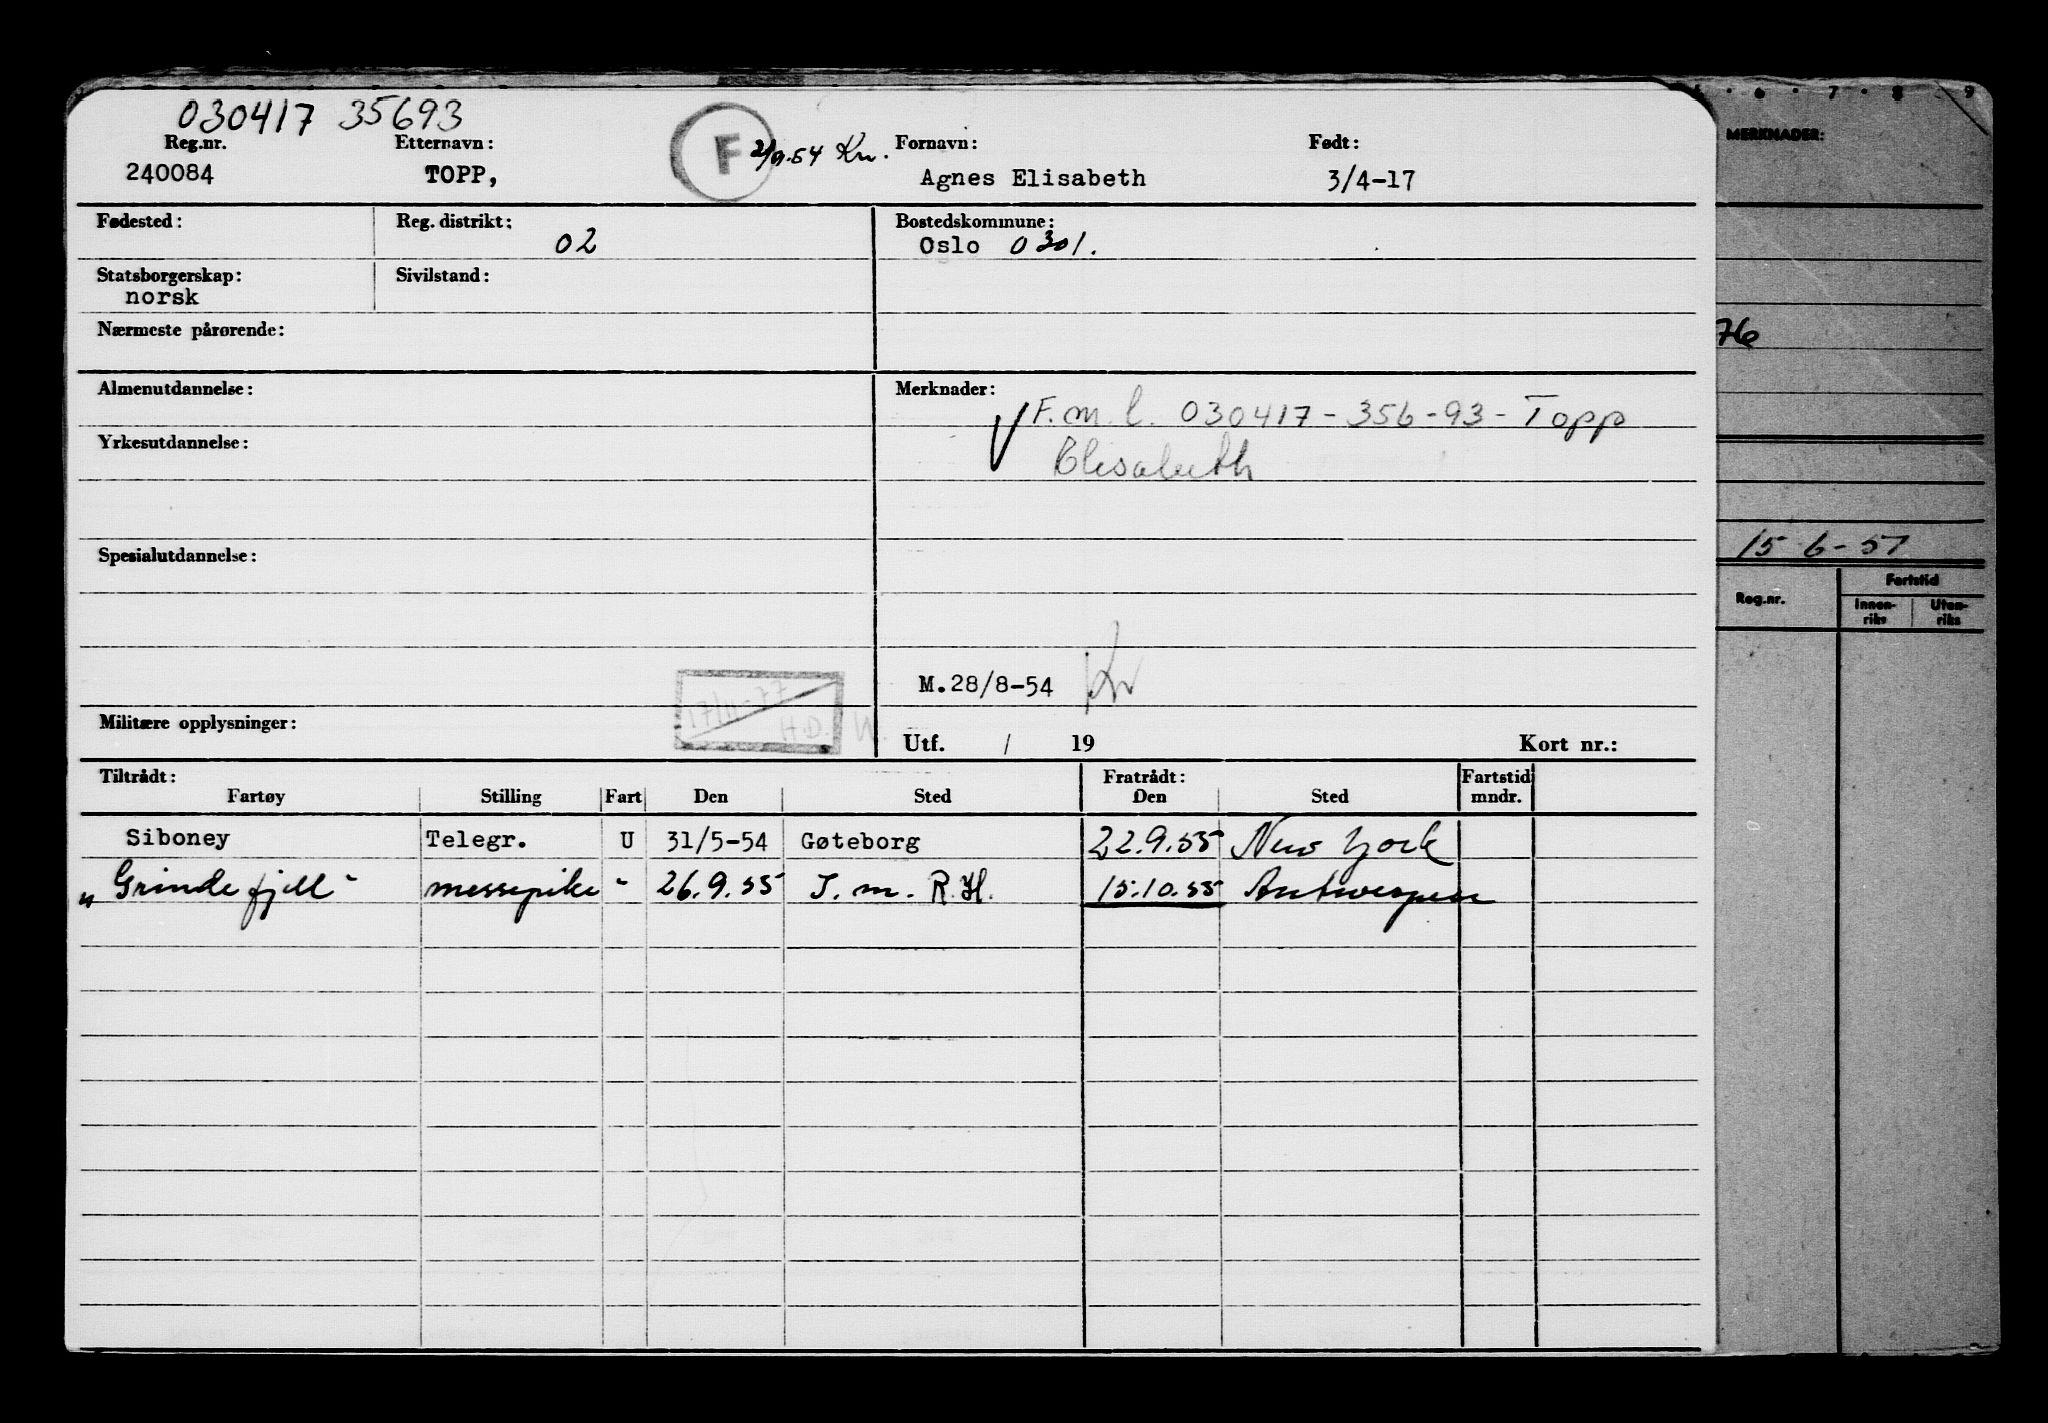 030417 35693
Reg.nr. Etternavn: F 2/9.54 Kn. Fornavn: Født:
240084 TOPP, Agnes Elisabeth 3/4-17
Fødested: Reg. distrikt: 02 Bostedskommune:
Oslo 0301.
Statsborgerskap: Sivilstand:
norsk
Nærmeste pårørende:
Almenutdannelse: Merknader:
F.m.l. 030417-356-93-Topp
Elisabeth
Yrkesutdannelse:
Spesialutdannelse:
M.28/8-54
17/11-77
H.D.
Militære opplysninger: Utf. / 19 Kort nr.:
Tiltrådt: Fratrådt: Fartstid
Fartøy Stilling Fart Den Sted Den Sted mndr.
Siboney Telegr. U 31/5-54 Gøteborg 22.9.55 New York
„Grindefjell" messepike " 26.9.55 I.m. R.H. 15.10.55 Antwerpen
6 · 7 · 8 9
MERKNADER:
76
15 6-57
Reg.nr. Fartstid
Innen-
riks
Uten-
riks